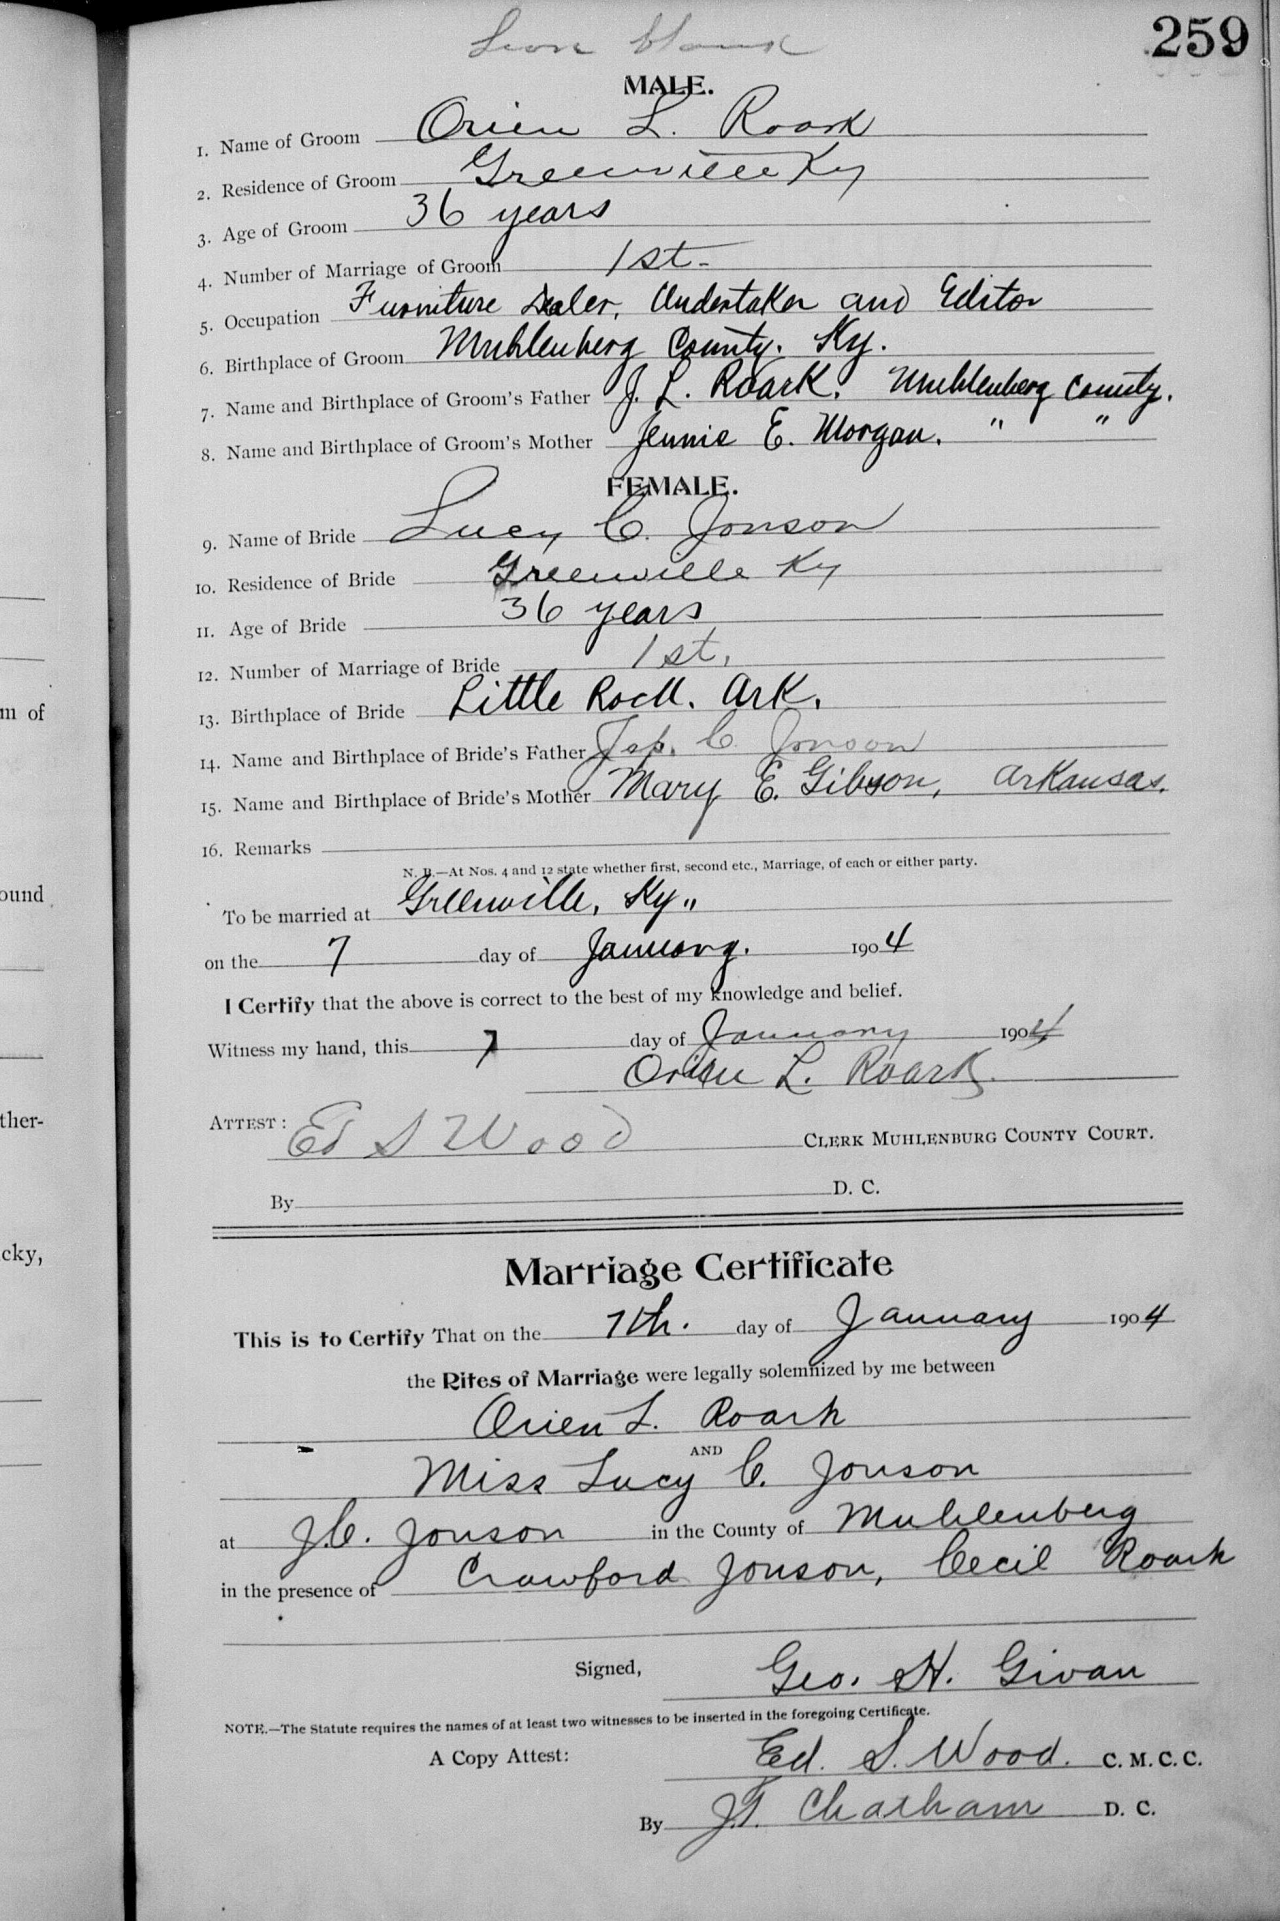 259
MALE.
1. Name of Groom Orien L. Roark
2. Residence of Groom Greenville Ky
3. Age of Groom 36 years
4. Number of Marriage of Groom 1st-
5. Occupation Furniture Dealer, Undertaker and Editor
6. Birthplace of Groom Muhlenberg County. Ky.
7. Name and Birthplace of Groom's Father J. L. Roark. Muhlenberg County.
8. Name and Birthplace of Groom's Mother Jennie E. Morgan. " "
FEMALE.
9. Name of Bride Lucy C. Jonson
10. Residence of Bride Greenville Ky
11. Age of Bride 36 years
12. Number of Marriage of Bride 1st,
13. Birthplace of Bride Little Rock. Ark.
14. Name and Birthplace of Bride's Father C. Jonson
15. Name and Birthplace of Bride's Mother Mary E. Gibson, Arkansas.
16. Remarks
N. B.—At Nos. 4 and 12 state whether first, second etc., Marriage, of each or either party.
To be married at Greenville, Ky"
on the 7 day of January. 1904
I Certify that the above is correct to the best of my knowledge and belief.
Witness my hand, this 7 day of January 1904
Orien L. Roark.
ATTEST: Ed S Wood CLERK MUHLENBURG COUNTY COURT.
By D. C.
Marriage Certificate
This is to Certify That on the 7th. day of January 1904
the Rites of Marriage were legally solemnized by me between
Orien L. Roark
AND
Miss Lucy C. Jonson
at J.C. Jonson in the County of Muhlenberg
in the presence of Crawford Jonson, Cecil Roark
Signed, Geo. H. Givan
NOTE.—The Statute requires the names of at least two witnesses to be inserted in the foregoing Certificate.
A Copy Attest: Ed. S. Wood. C. M. C. C.
By J.T. Chatham D. C.
m of
ound
ther-
cky,